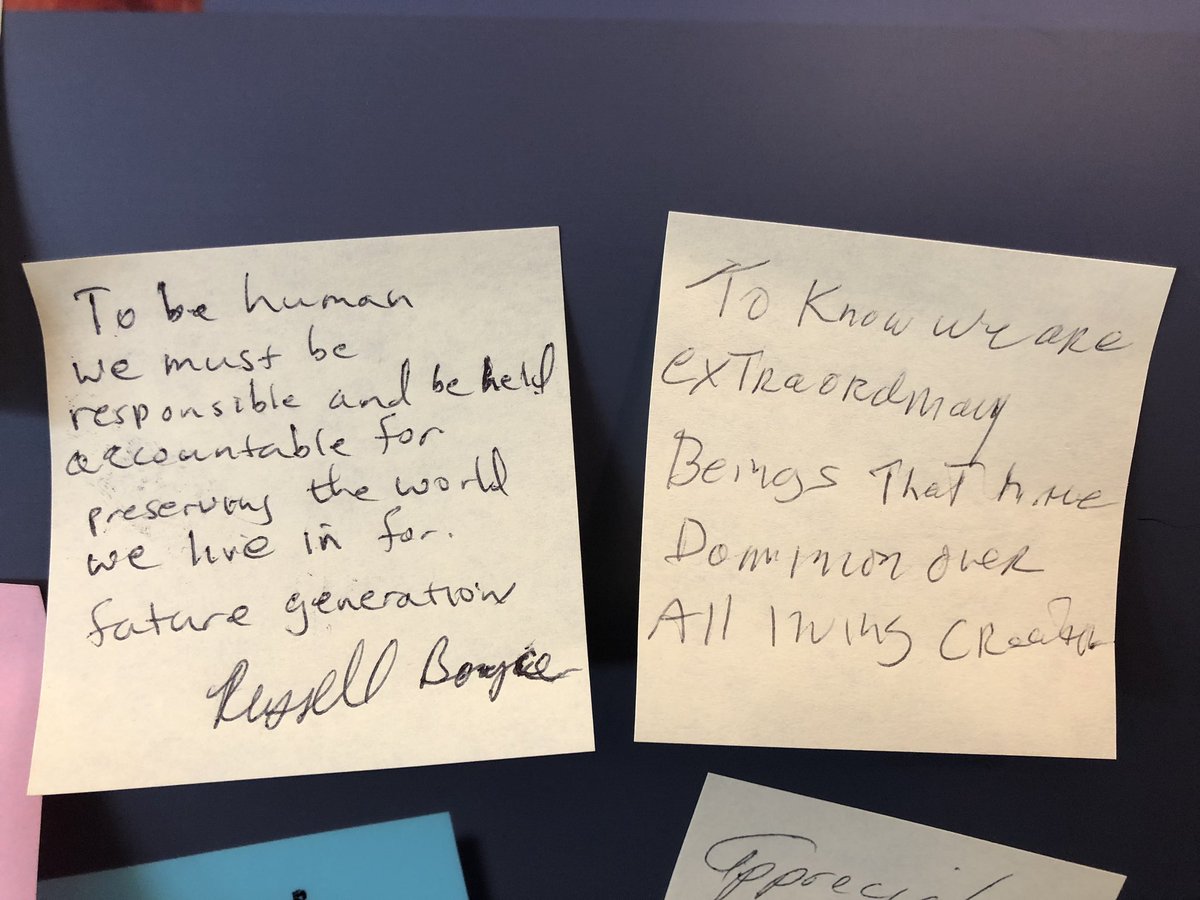 To be human
we must be
responsible and be held
accountable for
preserving the world
we live in for.
future generation
Russell Boyce
To Know we are
exTRaordinary
Beings ThaT have
Dominion over
All living